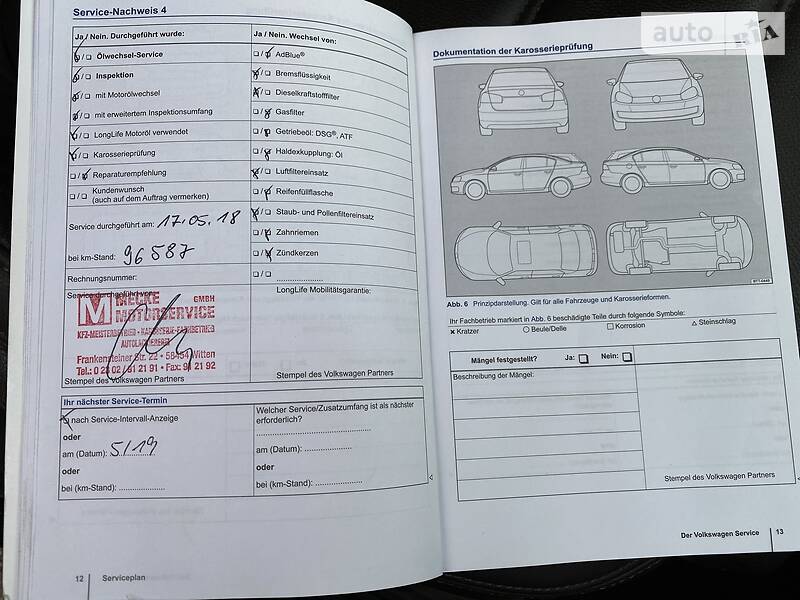 Service-Nachweis 4
Ja / Nein. Durchgeführt wurde:
Ölwechsel-Service
Inspektion
mit Motorölwechsel
mit erweitertem Inspektionsumfang
LongLife Motoröl verwendet
Karosserieprüfung
Reparaturempfehlung
Kundenwunsch
(auch auf dem Auftrag vermerken)
Service durchgeführt am: 17.05.18
bei km-Stand: 96587
Rechnungsnummer:
Service durchgeführt von:
MOTORSERVICE
GMBH
KFZ-MEISTERBETRIEB • KAROSSERIE-FACHBETRIEB
AUTOLACKIEREREI
Frankensteiner Str. 22 • 58454 Witten
Tel.: 0 23 02 / 91 21 91 • Fax: 91 21 92
Stempel des Volkswagen Partners
Ja / Nein. Wechsel von:
AdBlue®
Bremsflüssigkeit
Dieselkraftstofffilter
Gasfilter
Getriebeöl: DSG®, ATF
Haldexkupplung: Öl
Luftfiltereinsatz
Reifenfüllflasche
Staub- und Pollenfiltereinsatz
Zahnriemen
Zündkerzen
LongLife Mobilitätsgarantie:
Stempel des Volkswagen Partners
Ihr nächster Service-Termin
nach Service-Intervall-Anzeige
oder
am (Datum): 5/19
oder
bei (km-Stand):
Welcher Service/Zusatzumfang ist als nächster
erforderlich?
am (Datum):
oder
bei (km-Stand):
12 Serviceplan
auto RIA
Dokumentation der Karosserieprüfung
Abb. 6 Prinzipdarstellung. Gilt für alle Fahrzeuge und Karosserieformen.
Ihr Fachbetrieb markiert in Abb. 6 beschädigte Teile durch folgende Symbole:
Kratzer
Beule/Delle
Korrosion
Steinschlag
Mängel festgestellt? Ja: Nein:
Beschreibung der Mängel:
Stempel des Volkswagen Partners
Der Volkswagen Service 13